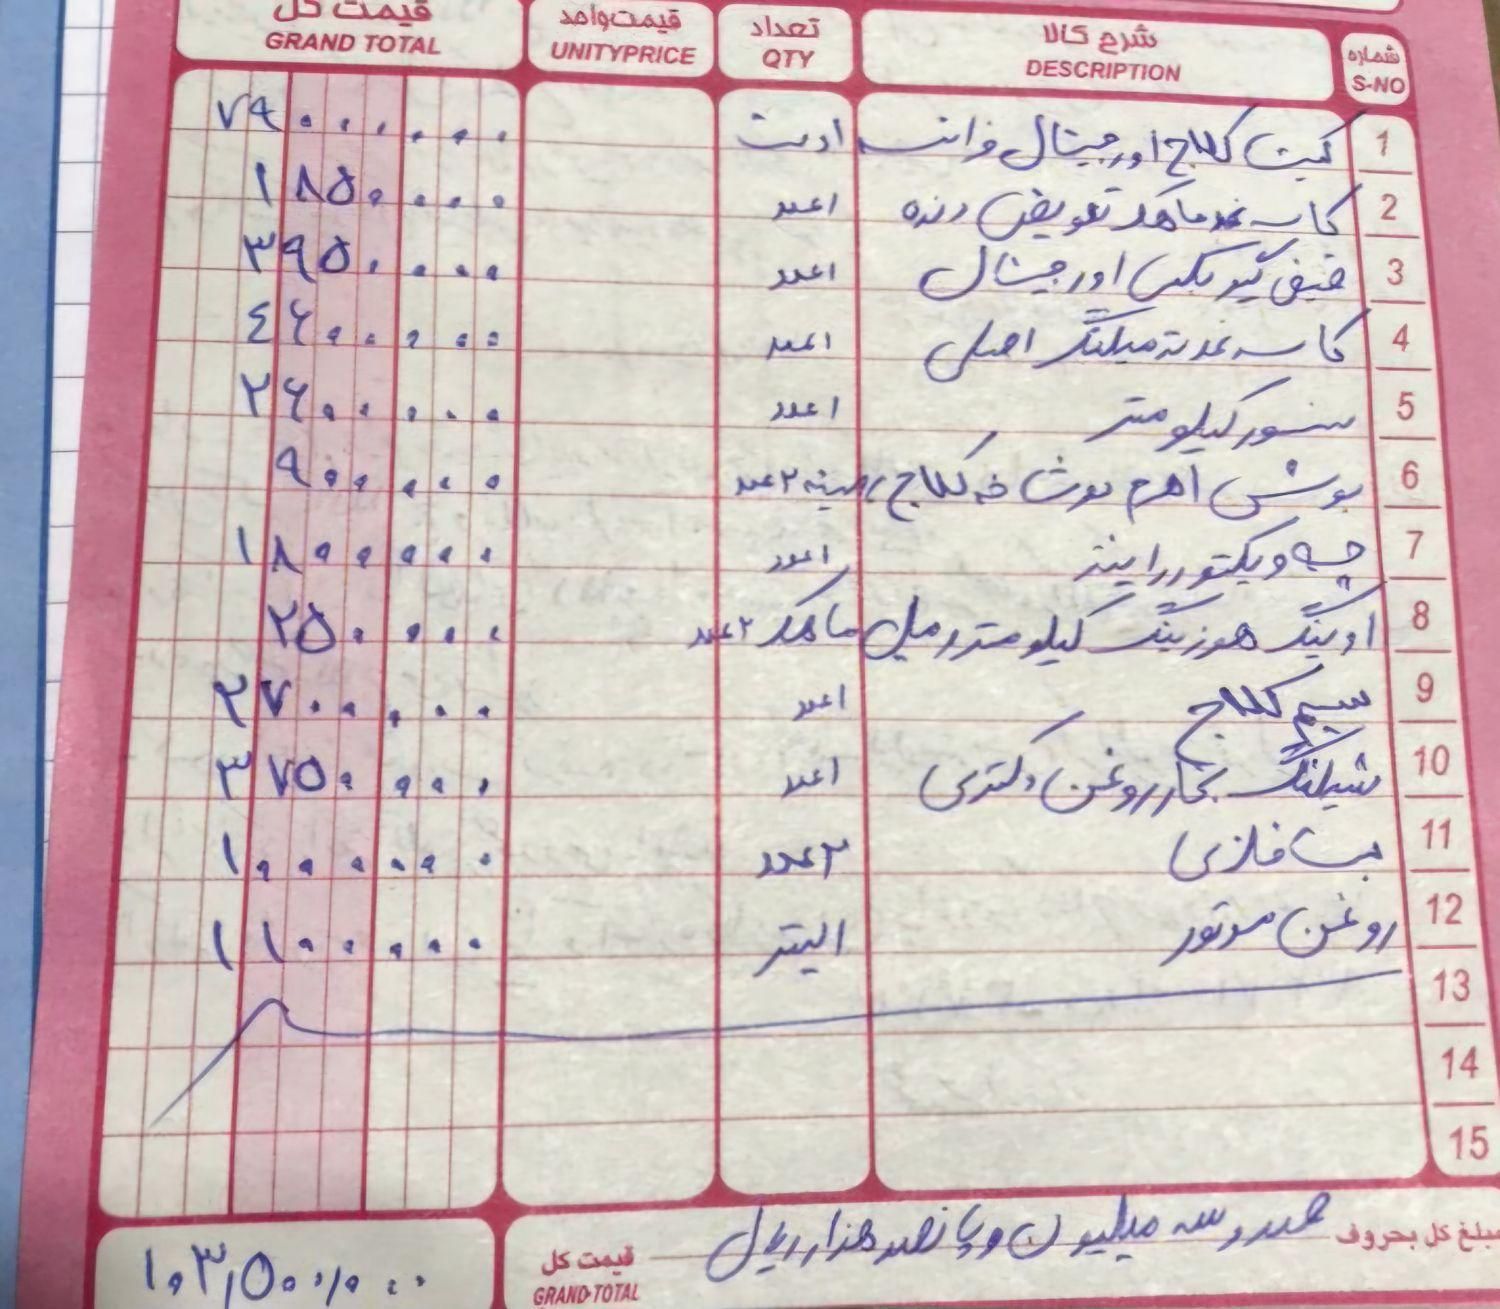 شماره S-NO شرح کالا DESCRIPTION تعداد QTY قیمت واحد UNITYPRICE قیمت کل GRAND TOTAL
1 کیت کلاچ اورجینال فرانسه ۱دست ۷۹۰۰۰۰۰۰
2 کاسه نمد ماهک تعویض دنده ۱عدد ۱۸۵۰۰۰۰
3 قیفی گیربکس اورجینال ۱عدد ۳۹۵۰۰۰۰
4 کاسه نمد ته میلنگ اصلی ۱عدد ۴۶۰۰۰۰۰
5 سنسور کیلومتر ۱عدد ۲۶۰۰۰۰۰
6 بوش اهرم دوشاخه کلاچ ۲عدد ۹۰۰۰۰۰
7 ۱عدد ۱۸۰۰۰۰۰
8 اورینگ هوزینگ کیلومتر و میل ماهک ۲عدد ۲۵۰۰۰۰
9 سیم کلاچ ۱عدد ۲۷۰۰۰۰۰
10 شیلنگ بخار روغن دکتری ۱عدد ۳۷۵۰۰۰۰
11 بست فلزی ۲عدد ۱۰۰۰۰۰۰
12 روغن موتور ۱لیتر ۱۱۰۰۰۰۰
13
14
15
مبلغ کل بحروف صدو سه میلیون و پانصد هزار ریال قیمت کل GRAND TOTAL ۱۰۳,۵۰۰,۰۰۰